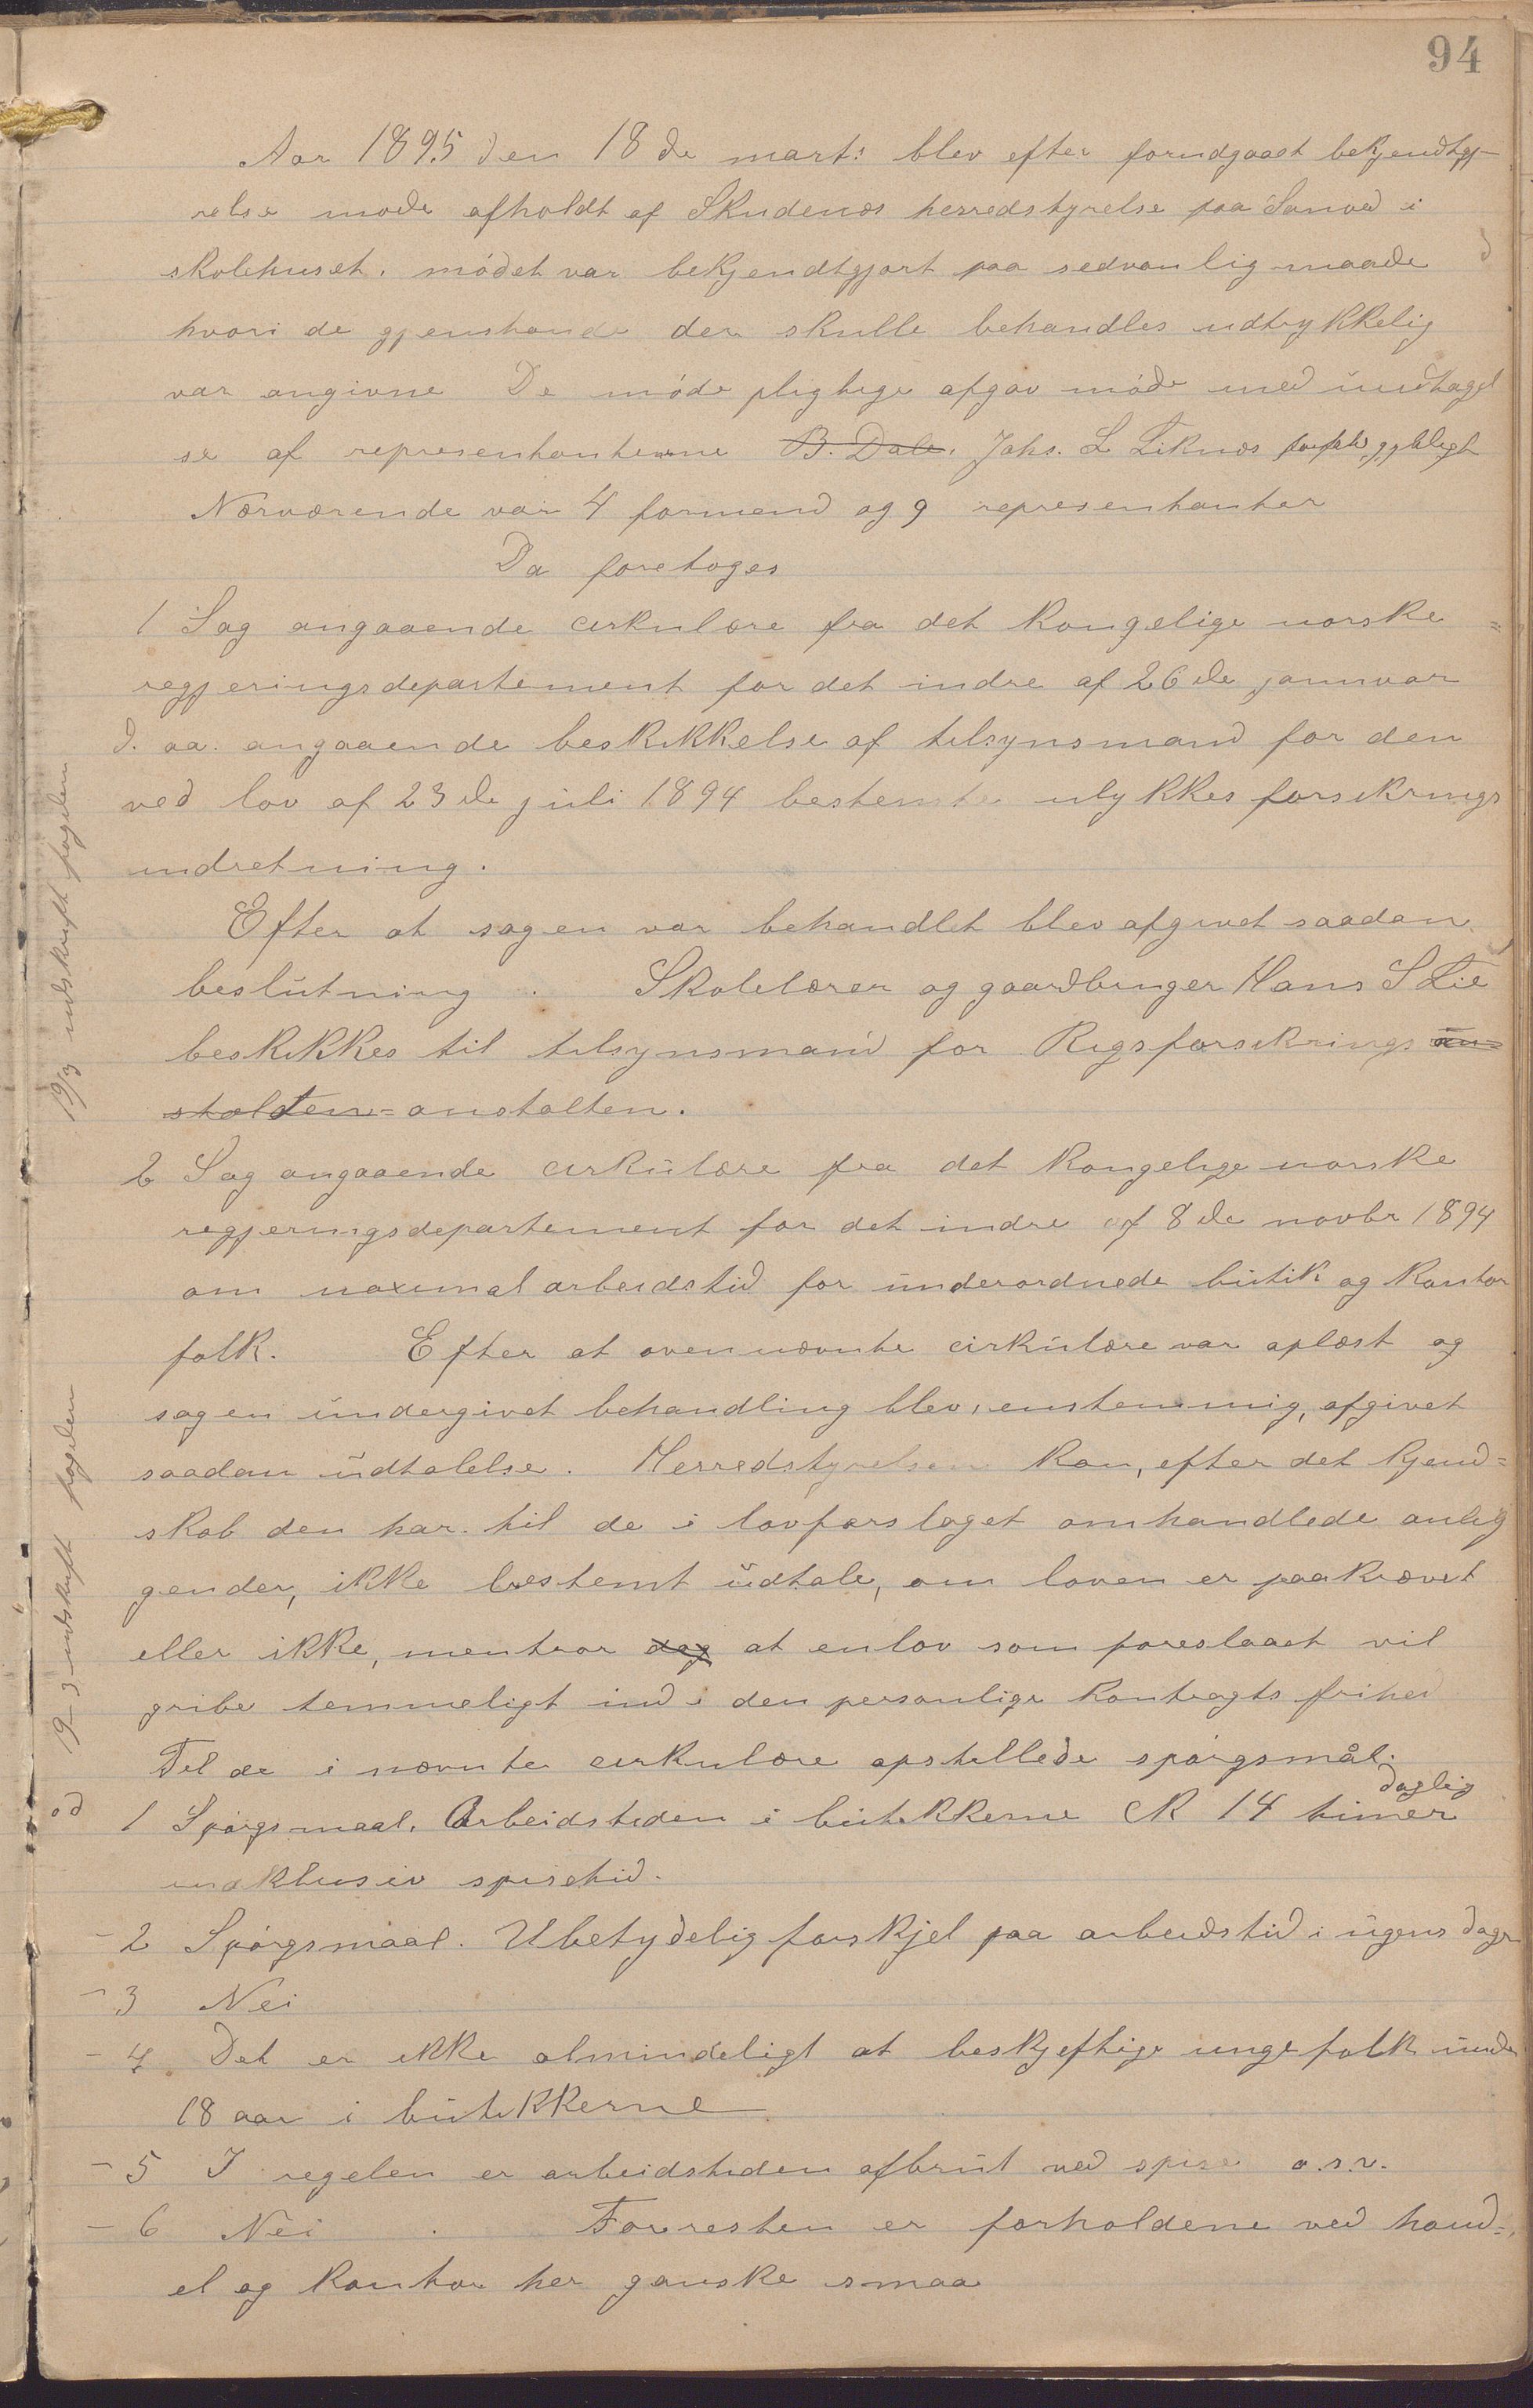 94
Aar 1895 den 18de marts blev efter forudgaaet bekjendtgjø-
relse møde afholdt af Skudenæs herredstyrelse paa Sanved i
skolehuset. mødet var bekjendtgjort paa sedvanlig maade
hvori de gjenstande der skulle behandles udtrykkelig
var angivne De møde pligtige afgav møde med undtagel
se af representanterne B. Dale. Johs. L Liknæs
Nærværende var 4 formænd og 9 representanter
Da foretoges
1 Sag angaaende cirkulære fra det kongelige norske
regjeringsdepartement for det indre af 26de januar
d. aa. angaaende beskikkelse af tilsynsmand for den
ved lov af 23de juli 1894 bestemte ulykkesforsikrings
indretning.
Efter at sagen var behandlet blev afgivet saadan
beslutning. Skolelærer og gaardbruger Hans S Lie
beskikkes til tilsynsmand for Rigsforsikrings an-
stalten= anstalten.
2 Sag angaaende cirkulære fra det kongelige norske
regjeringsdepartement for det indre af 8de novbr 1894
om maximal arbeidstid for underordnede butik og kontor
folk. Efter at ovennævnte cirkulære var oplæst og
sagen undergivet behandling blev, enstemmig, afgivet
saadan udtalelse. Herredstyrelsen kan, efter det kjend=
skab den har til de i lovforslaget omhandlede anlig
gender, ikke bestemt udtale, om loven er paakrævet
eller ikke, men tror dog at en lov som foreslaaet vil
gribe temmeligt ind i den personlige kontragts frihed
Til de i nævnte cirkulære opstillede spørgsmål.
ad 1 Spørgsmaal. Arbeidstiden i butikkerne er 14 timer daglig
indklusiv spisetid.
- 2 Spørgsmaal. Ubetydelig forskjel paa arbeidstid i ugens dage
- 3 Nei
- 4 Det er ikke almindeligt at beskjeftige unge folk under
18 aar i butikkerne
- 5 I regelen er arbeidstiden afbrut ved spise o.s.v.
- 6 Nei . Forresten er forholdene ved hand=
el og kontor her ganske smaa
19/3 udskrift fogden
19-3 udskrift fogden